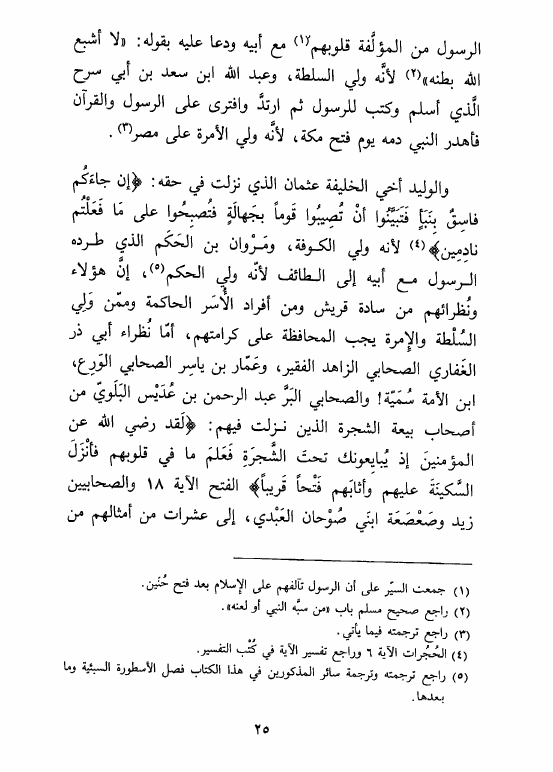 الرسول من المؤلَّفة قلوبهم(١) مع أبيه ودعا عليه بقوله: «لا أشبع
الله بطنه»(٢) لأنَّه ولي السلطة، وعبد الله ابن سعد بن أبي سرح
الَّذي أسلم وكتب للرسول ثم ارتدَّ وافترى على الرسول والقرآن
فأهدر النبي دمه يوم فتح مكة، لأنَّه ولي الأمرة على مصر(٣).
والوليد أخي الخليفة عثمان الذي نزلت في حقه: ﴿إن جاءَكُم
فاسِقٌ بِنَبَأٍ فَتَبيَّنُوا أنْ تُصِيبُوا قَوماً بجَهالَةٍ فتُصبحُوا على مَا فَعَلْتُم
نادِمِين﴾(٤) لأنه ولي الكوفة، ومَرْوان بن الحَكَم الذي طرده
الرسول مع أبيه إلى الطائف لأنّه ولي الحكم(٥)، إنَّ هؤلاء
ونُظرائهم من سادة قريش ومن أفراد الأُسَر الحاكمة وممّن وَلِي
السُلْطة والإمرة يجب المحافظة على كرامتهم، أمّا نُظراء أبي ذر
الغَفاري الصحابي الزاهد الفقير، وعَمّار بن ياسِر الصحابي الوَرِع،
ابن الأمة سُمَيّة! والصحابي البَرَّ عبد الرحمن بن عُدَيْس البَلَويّ من
أصحاب بيعة الشجرة الذين نزلت فيهم: ﴿لَقد رضي الله عن
المؤمنينَ إذ يُبايعونك تحتَ الشَّجرَةِ فَعَلمَ ما في قلوبهم فأنْزَلَ
السَّكينَةَ عليهم وأثابَهم فَتْحاً قَريباً﴾ الفتح الآية ١٨ والصحابيين
زيد وصَعْصَعَة ابنَي صُوْحان العَبْدي، إلى عشرات من أمثالهم من
(١) جمعت السيّر على أن الرسول تآلفهم على الإسلام بعد فتح حُنَين.
(٢) راجع صحيح مسلم باب «من سبَّه النبي أو لعنه».
(٣) راجع ترجمته فيما يأتي.
(٤) الحُجُرات الآية ٦ وراجع تفسير الآية في كُتْب التفسير.
(٥) راجع ترجمته وترجمة سائر المذكورين في هذا الكتاب فصل الأسطورة السبئية وما
بعدها.
٢٥